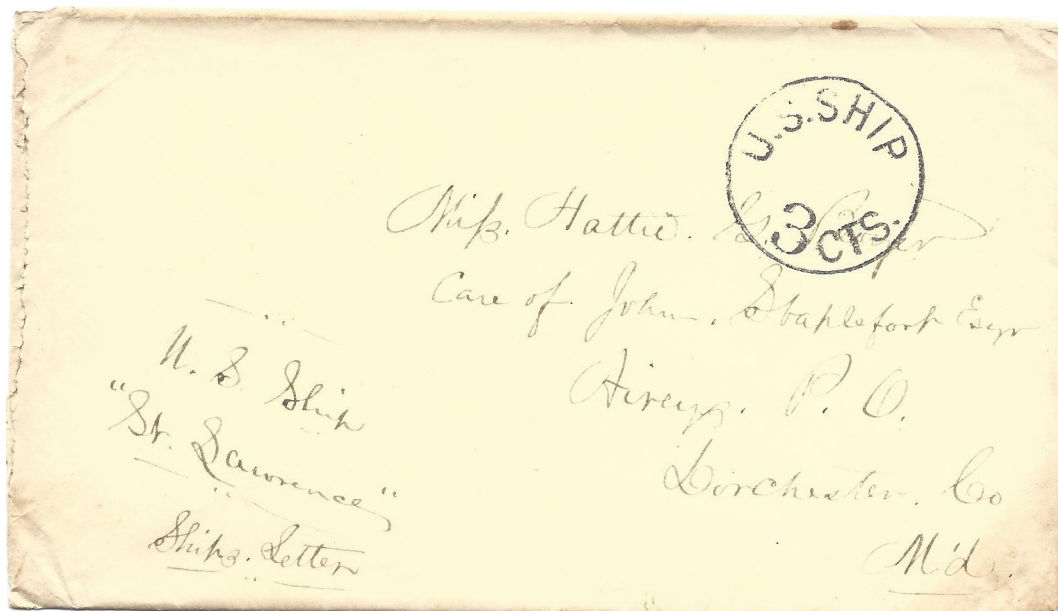 U.S.SHIP
3 CTS.
Miss. Hattie.
Care of John. Staplefort Esqr
Aireys. P. O.
Dorchester. Co
M'd.
U. S. Ship
"St. Lawrence"
Ships. Letter